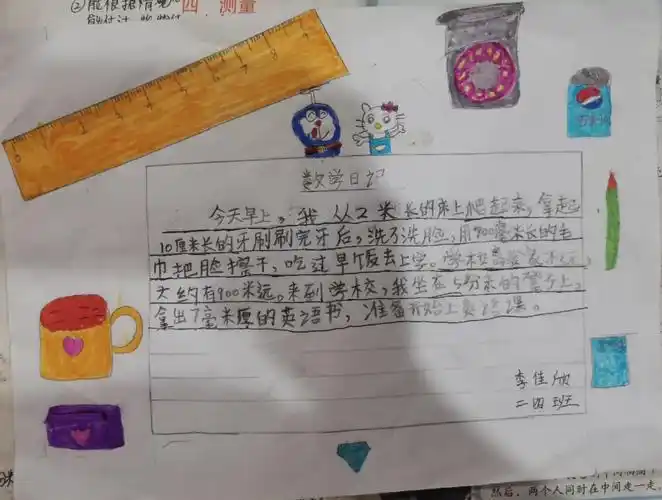 四、测量
数学日记
今天早上，我从2米长的床上爬起来，拿起
10厘米长的牙刷刷完牙后，洗了洗脸，用900毫米长的毛
巾把脸擦干，吃过早饭去上学。学校离我家不远，
大约有900米远。来到学校，我坐在5分米的凳子上，
拿出7毫米厚的英语书，准备开始上英语课。
李佳欣
二四班
然后，两个人同时在中间走一走